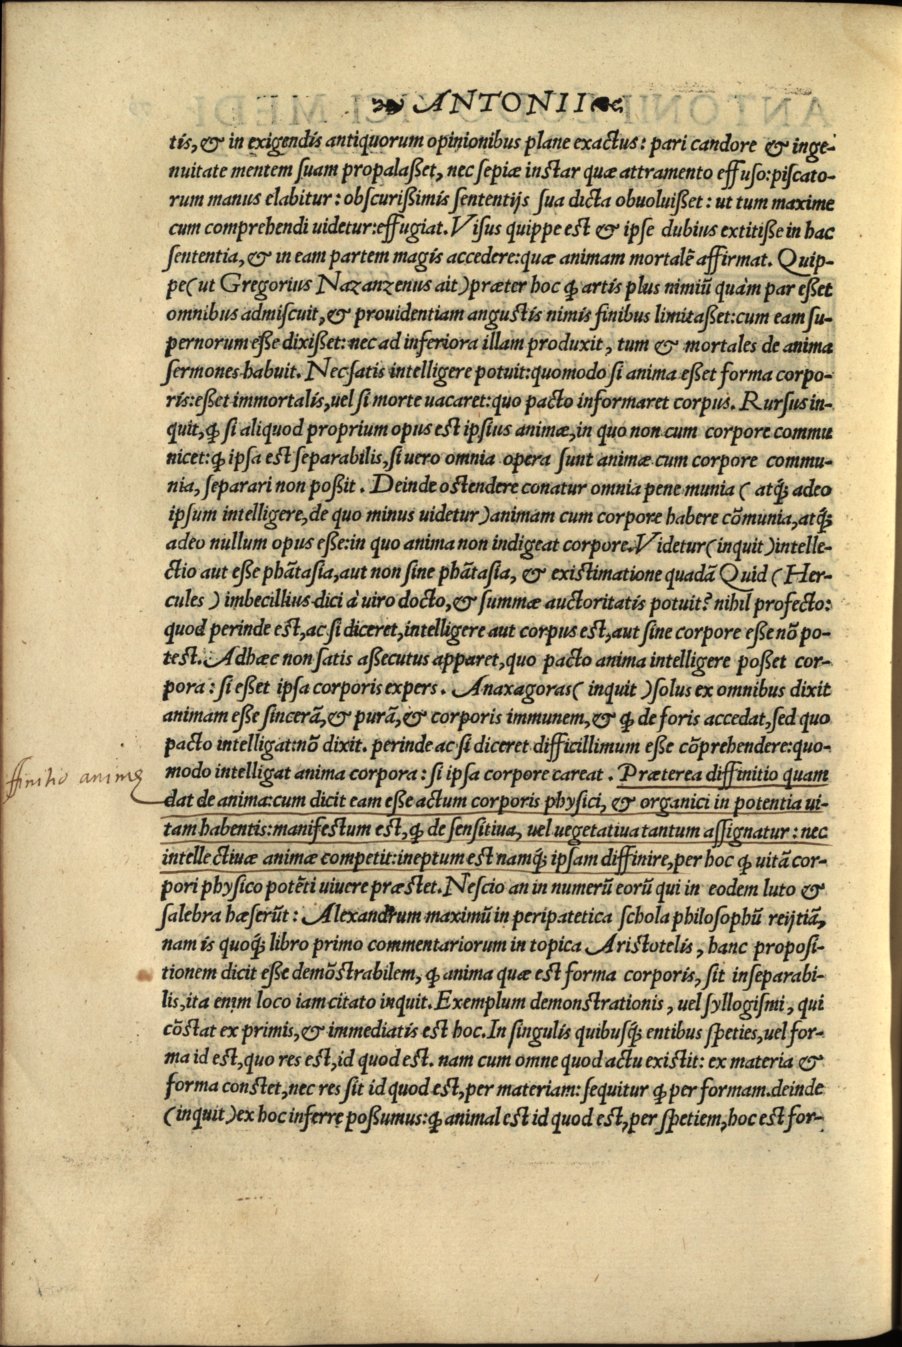 ANTONII
tis, & in exigendis antiquorum opinionibus plane exactus: pari candore & inge-
nuitate mentem ſuam propalaßet, nec ſepiæ inſtar quæ attramento effuſo: piſcato-
rum manus elabitur: obſcurißimis ſententijs ſua dicta obuoluißet: ut tum maxime
cum comprehendi uidetur: effugiat. Viſus quippe eſt & ipſe dubius extitiße in hac
ſententia, & in eam partem magis accedere: quæ animam mortalẽ affirmat. Quip-
pe (ut Gregorius Nazanzenus ait) præter hoc ꝙ artis plus nimiũ quàm par eßet
omnibus admiſcuit, & prouidentiam anguſtis nimis finibus limitaßet: cum eam ſu-
pernorum eße dixißet: nec ad inferiora illam produxit, tum & mortales de anima
ſermones habuit. Nec ſatis intelligere potuit: quomodo ſi anima eßet forma corpo-
ris: eßet immortalis, uel ſi morte uacaret: quo pacto informaret corpus. Rurſus in-
quit, ꝙ ſi aliquod proprium opus eſt ipſius animæ, in quo non cum corpore commu
nicet: ꝙ ipſa eſt ſeparabilis, ſi uero omnia opera ſunt animæ cum corpore commu-
nia, ſeparari non poßit. Deinde oſtendere conatur omnia pene munia ( atq́; adeo
ipſum intelligere, de quo minus uidetur) animam cum corpore habere cõmunia, atq́;
adeo nullum opus eße: in quo anima non indigeat corpore. Videtur (inquit) intelle-
ctio aut eße phãtaſia, aut non ſine phãtaſia, & exiſtimatione quadã Quid ( Her-
cules ) imbecillius dici à uiro docto, & ſummæ auctoritatis potuit? nihil profecto:
quod perinde eſt, ac ſi diceret, intelligere aut corpus eſt, aut ſine corpore eße nõ po-
teſt. Adhæc non ſatis aßecutus apparet, quo pacto anima intelligere poßet cor-
pora: ſi eßet ipſa corporis expers. Anaxagoras ( inquit ) ſolus ex omnibus dixit
animam eße ſincerã, & purã, & corporis immunem, & ꝙ de foris accedat, ſed quo
pacto intelligat: nõ dixit. perinde ac ſi diceret difficillimum eße cõprehendere: quo-
modo intelligat anima corpora: ſi ipſa corpore careat. Præterea diffinitio quam
ffinitio animę
dat de anima: cum dicit eam eße actum corporis phyſici, & organici in potentia ui-
tam habentis: manifeſtum eſt, ꝙ de ſenſitiua, uel uegetatiua tantum aſſignatur: nec
intellectiuæ animæ competit: ineptum eſt namq́; ipſam diffinire, per hoc ꝙ uitã cor-
pori phyſico potẽti uiuere præſtet. Neſcio an in numerũ eorũ qui in eodem luto &
ſalebra hæſerũt: Alexandrum maximũ in peripatetica ſchola philoſophũ reijtiã,
nam is quoq́; libro primo commentariorum in topica Ariſtotelis, hanc propoſi-
tionem dicit eße demõſtrabilem, ꝙ anima quæ eſt forma corporis, ſit inſeparabi-
lis, ita enim loco iam citato inquit. Exemplum demonſtrationis, uel ſyllogiſmi, qui
cõſtat ex primis, & immediatis eſt hoc. In ſingulis quibuſq́; entibus ſpeties, uel for-
ma id eſt, quo res eſt, id quod eſt. nam cum omne quod actu exiſtit: ex materia &
forma conſtet, nec res ſit id quod eſt, per materiam: ſequitur ꝙ per formam. deinde
(inquit) ex hoc inferre poßumus: ꝙ animal eſt id quod eſt, per ſpetiem, hoc eſt for-